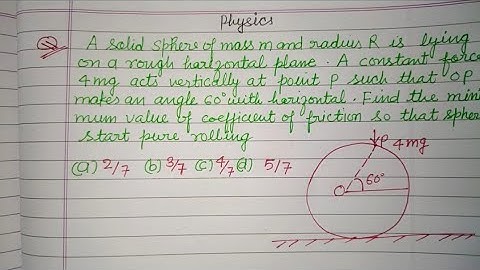 Physics
Q A solid sphere of mass m and radius R is lying
on a rough horizontal plane. A constant force
4mg acts vertically at point P such that OP
makes an angle 60° with horizontal. Find the mini
mum value of coefficient of friction so that sphere
start pure rolling
(a) 2/7 (b) 3/7 (c) 4/7 (d) 5/7
P 4mg
O 60°